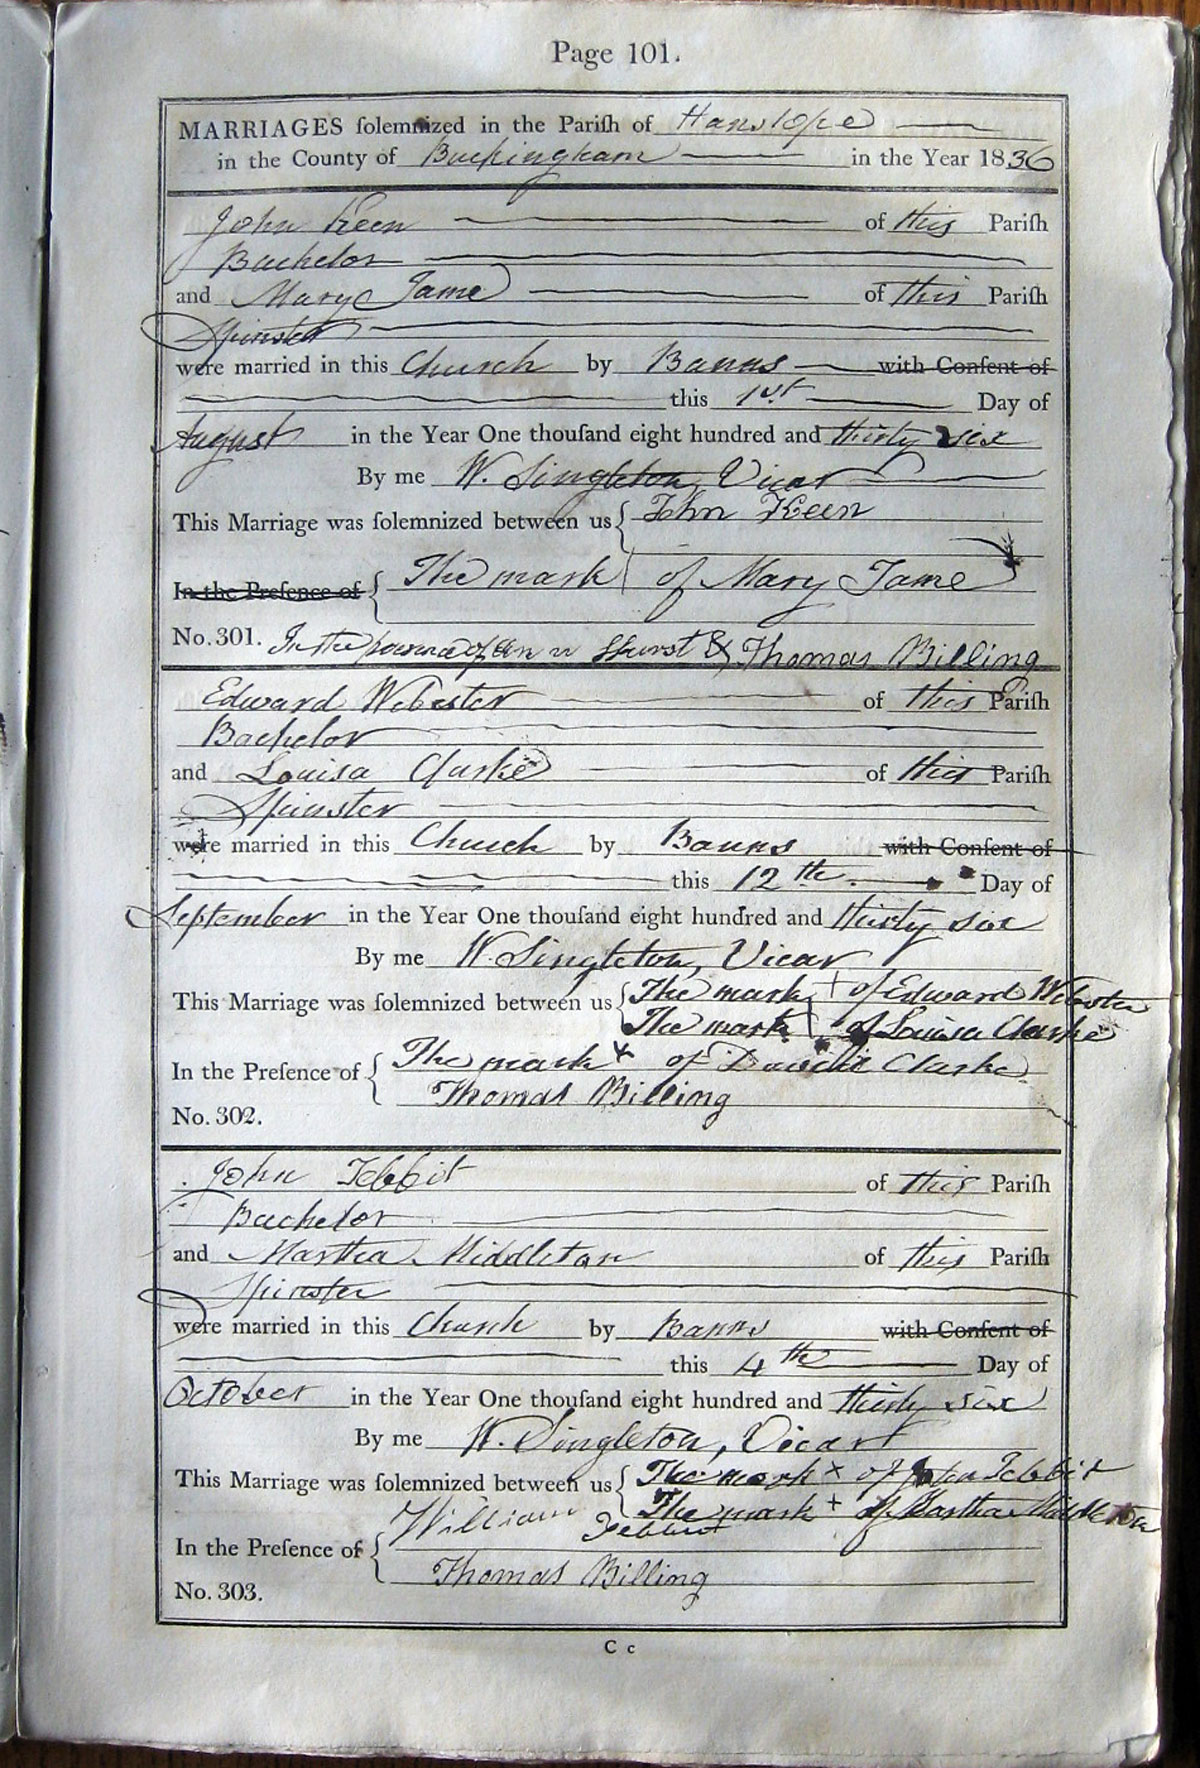 Page 101.
MARRIAGES ſolemnized in the Pariſh of Hanslope
in the County of Buckingham in the Year 1836
John Keen of this Pariſh
Bachelor
and Mary Jame of this Pariſh
Spinster
were married in this Church by Banns with Conſent of
this 1st Day of
August in the Year One thouſand eight hundred and thirty six
By me W. Singleton, Vicar
This Marriage was ſolemnized between us { John Keen
In the Preſence of { The mark of Mary Jame
No. 301. In the presence of Hurst & Thomas Billing
Edward Webster of this Pariſh
Bachelor
and Louisa Clarke of this Pariſh
Spinster
were married in this Church by Banns with Conſent of
this 12th. Day of
September in the Year One thouſand eight hundred and thirty six
By me W. Singleton, Vicar
This Marriage was ſolemnized between us { The mark + of Edward Webster
The mark of Louisa Clarke
In the Preſence of { The mark x of Clarke
Thomas Billing
No. 302.
John Tebbit of this Pariſh
Bachelor
and Martha Middleton of this Pariſh
Spinster
were married in this Church by Banns with Conſent of
this 4th Day of
October in the Year One thouſand eight hundred and thirty six
By me W. Singleton, Vicar
This Marriage was ſolemnized between us { The mark x of John Tebbit
The mark + of Martha Middleton
In the Preſence of { William Tebbut
Thomas Billing
No. 303.
C c